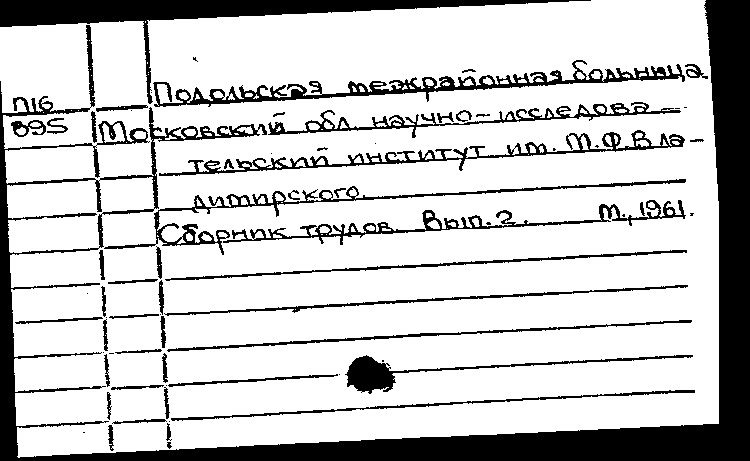 Подольская межрайонная больница.
П16
895 Московский обл. научно-исследова-
тельский институт им. М.Ф.Вла-
димирского.
Сборник трудов. Вып. 2. М., 1961.